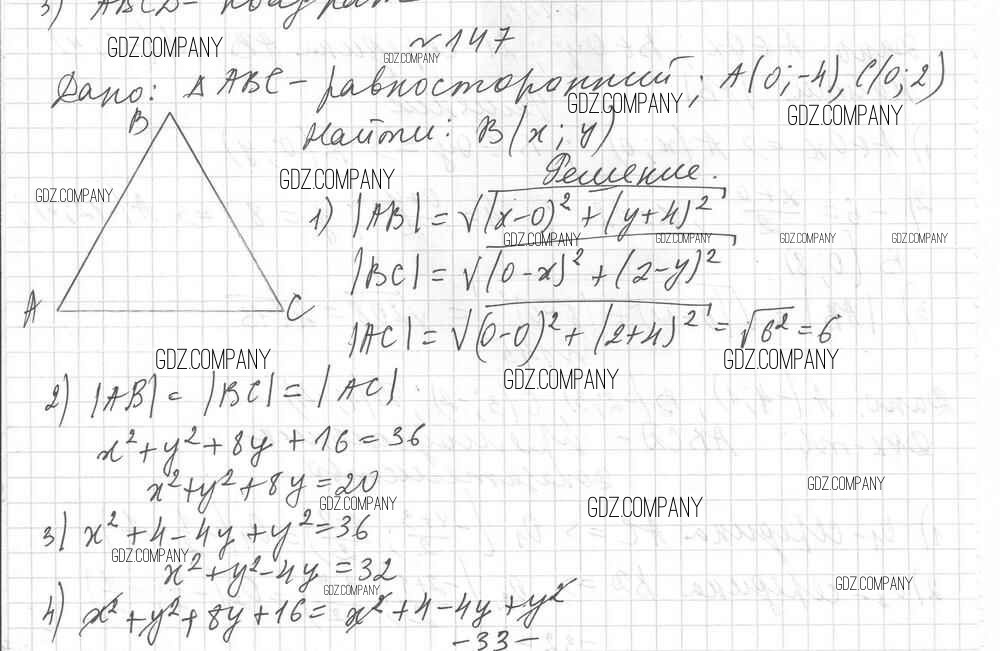 3) ABCD - квадрат
GDZ.COMPANY
~147
GDZ.COMPANY
Дано: Δ ABC - равносторонний; A(0;-4), C(0;2)
GDZ.COMPANY
GDZ.COMPANY
B
Найти: B(x; y)
Решение.
GDZ.COMPANY
GDZ.COMPANY
1) |AB| = √(x-0)² + (y+4)²
GDZ.COMPANY GDZ.COMPANY GDZ.COMPANY GDZ.COMPANY
|BC| = √(0-x)² + (2-y)²
A C
|AC| = √(0-0)² + (2+4)² = √6² = 6
GDZ.COMPANY GDZ.COMPANY
GDZ.COMPANY
2) |AB| = |BC| = |AC|
x² + y² + 8y + 16 = 36
x² + y² + 8y = 20
GDZ.COMPANY
GDZ.COMPANY
GDZ.COMPANY
3) x² + 4 - 4y + y² = 36
GDZ.COMPANY
x² + y² - 4y = 32
GDZ.COMPANY
GDZ.COMPANY
4) x² + y² + 8y + 16 = x² + 4 - 4y + y²
-33-